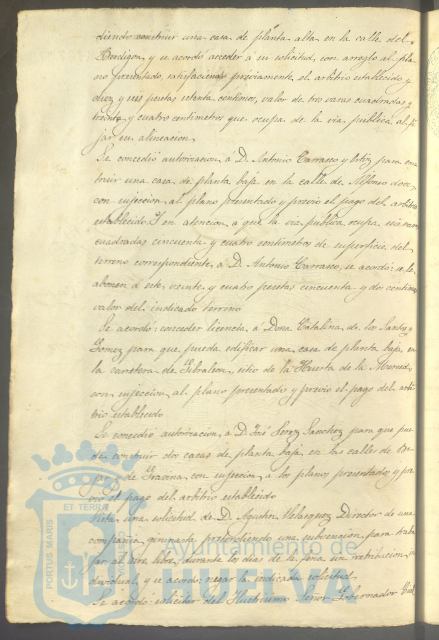 diendo construir una casa de planta alta en la calle del
Berdigon, y se acordó acceder á su solicitud, con arreglo al pla
no presentado, satisfaciendo previamente, el arbitrio establecido y
diez y seis pesetas setenta centimos, valor de tres varas cuadradas
treinta y cuatro centimetros que ocupa de la via publica al fi
jar su alineacion
Se concedió autorizacion á D. Antonio Carrasco y para cons
truir una casa de planta baja en la calle de Alfonso doce
con sujecion al plano presentado y previo el pago del arbitrio
establecido. Y en atencion á que la via publica ocupa seis varas
cuadradas cincuenta y cuatro centimetros de superficie del
terreno correspondiente á D. Antonio Carrasco, se acordó: se le
abonen á este, veinte y cuatro pesetas cincuenta y dos centimos
valor del indicado terreno
Se acordó: conceder licencia á Doña Catalina de los Santos y
Gomez para que pueda edificar una casa de planta baja en
la carretera de Gibraleon, sitio de la Huerta de la Merced,
con sujecion al plano presentado y previo el pago del arbi
trio establecido
Se concedió autorizacion á D. José Perez Sanchez para que pue
da construir dos casas de planta baja en las calles de
y de Gravina, con sujecion á los planos presentados y pre
vio el pago del arbitrio establecido
Vista una solicitud de D. Agustin Velazquez Director de una
compañia gimnasta pretendiendo una subvencion para traba
jar al aire libre, durante los dias de la feria sin retribucion
individual, y se acordó: negar la indicada solicitud
Se acordó: solicitar del Ilustrisimo Señor Gobernador Civil
PORTUS MARIS
ET TERRAE
Ayuntamiento de
HUELVA